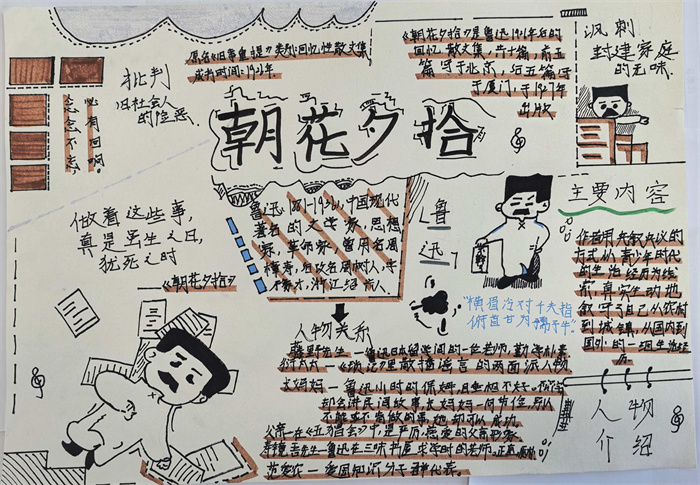 原名《旧事重提》类别:回忆性散文集
成书时间:1927年。
《朝花夕拾》是鲁迅1927年出的
回忆散文集,共十篇,前五
篇写于北京,后五篇写
于厦门,于1927年
出版
讽刺
封建家庭
的无味
批判
旧社会人
的险恶
念念不忘,
必有回响。
朝花夕拾
做着这些事,
真是虽生之日,
犹死之时
《朝花夕拾》
鲁迅 1881-1936,中国现代
著名的文学家,思想
家,革命家,曾用名周
樟寿,后改名周树人,字
豫才,浙江绍兴人。
「鲁
迅」
"横眉冷对千夫指
俯首甘为孺子牛"
主要内容
方式从青少年时代
的生活经历为线
索,真实生动地
叙写了自己从农村
到城镇,从国内到
国外的一段生活经
历
人物关系
藤野先生—鲁迅日本留学间的一位老师,勤学朴素
长妈妈—鲁迅小时的保姆,
不能或不肯做的事,她却可以成功。
父亲—在《五猖会》中,是严厉,慈爱的父亲形象
寿镜吾先生—鲁迅在三味书屋求学时的老师。
范爱农—爱国知识分子
人物
介绍